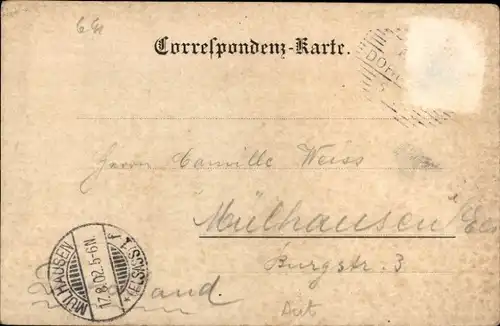 Correspondenz-Karte.
Herrn Camille Weiss
Mülhausen Els
Burgstr. 3
MÜLHAUSEN
17.8.02. 5-6N.
(ELSASS) 1